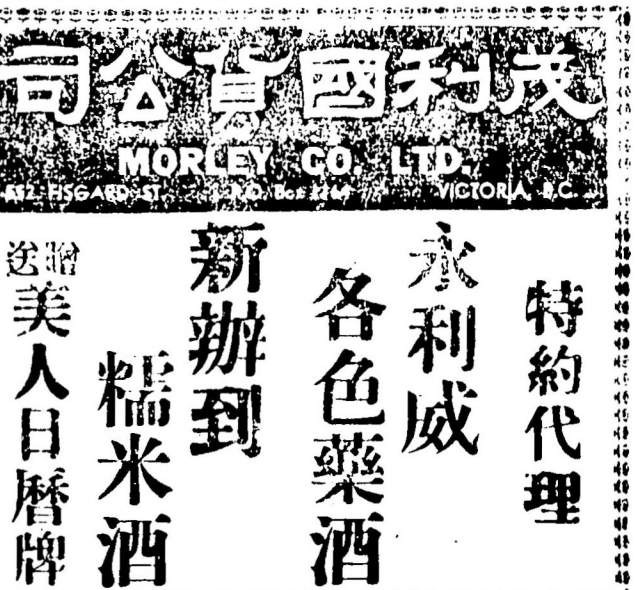 茂利國貨公司
MORLEY CO. LTD.
552 FISGARD ST. P.O. Box VICTORIA, B.C.
特約代理
永利威
各色藥酒
新辦到
糯米酒
贈送
美人日曆牌